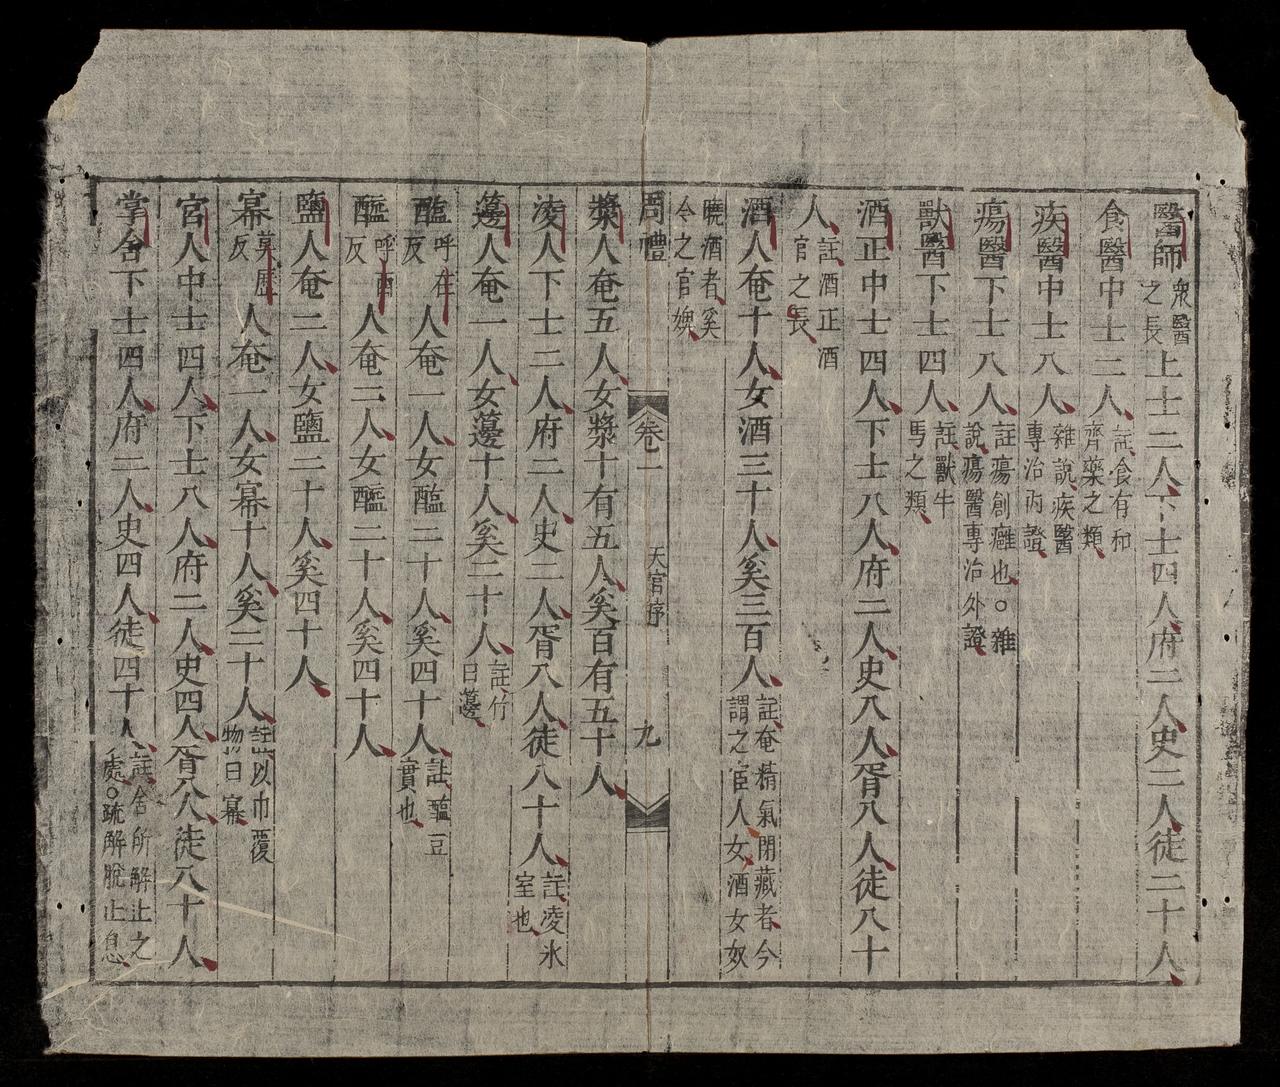 醫師衆醫之長上士二人下士四人府二人史二人徒二十人
食醫中士二人註食有和齊藥之類
疾醫中士八人雜說疾醫專治內證
瘍醫下士八人註瘍創癰也○雜說瘍醫專治外證
獸醫下士四人註獸牛馬之類
酒正中士四人下士八人府二人史八人胥八人徒八十
人註酒正酒官之長
酒人奄十人女酒三十人奚三百人註奄精氣閉藏者今謂之宦人女酒女奴
曉酒者奚令之官婢
周禮 卷一 天官序 九
漿人奄五人女漿十有五人奚百有五十人
凌人下士二人府二人史二人胥八人徒八十人註凌氷室也
籩人奄一人女籩十人奚二十人註竹曰籩
醢呼在反人奄一人女醢二十人奚四十人註醢豆實也
醯呼酉反人奄二人女醯二十人奚四十人
鹽人奄二人女鹽二十人奚四十人
冪莫歷反人奄一人女冪十人奚二十人註以巾覆物曰冪
宮人中士四人下士八人府二人史四人胥八人徒八十人
掌舍下士四人府二人史四人徒四十人註舍所解止之處○疏解脫止息